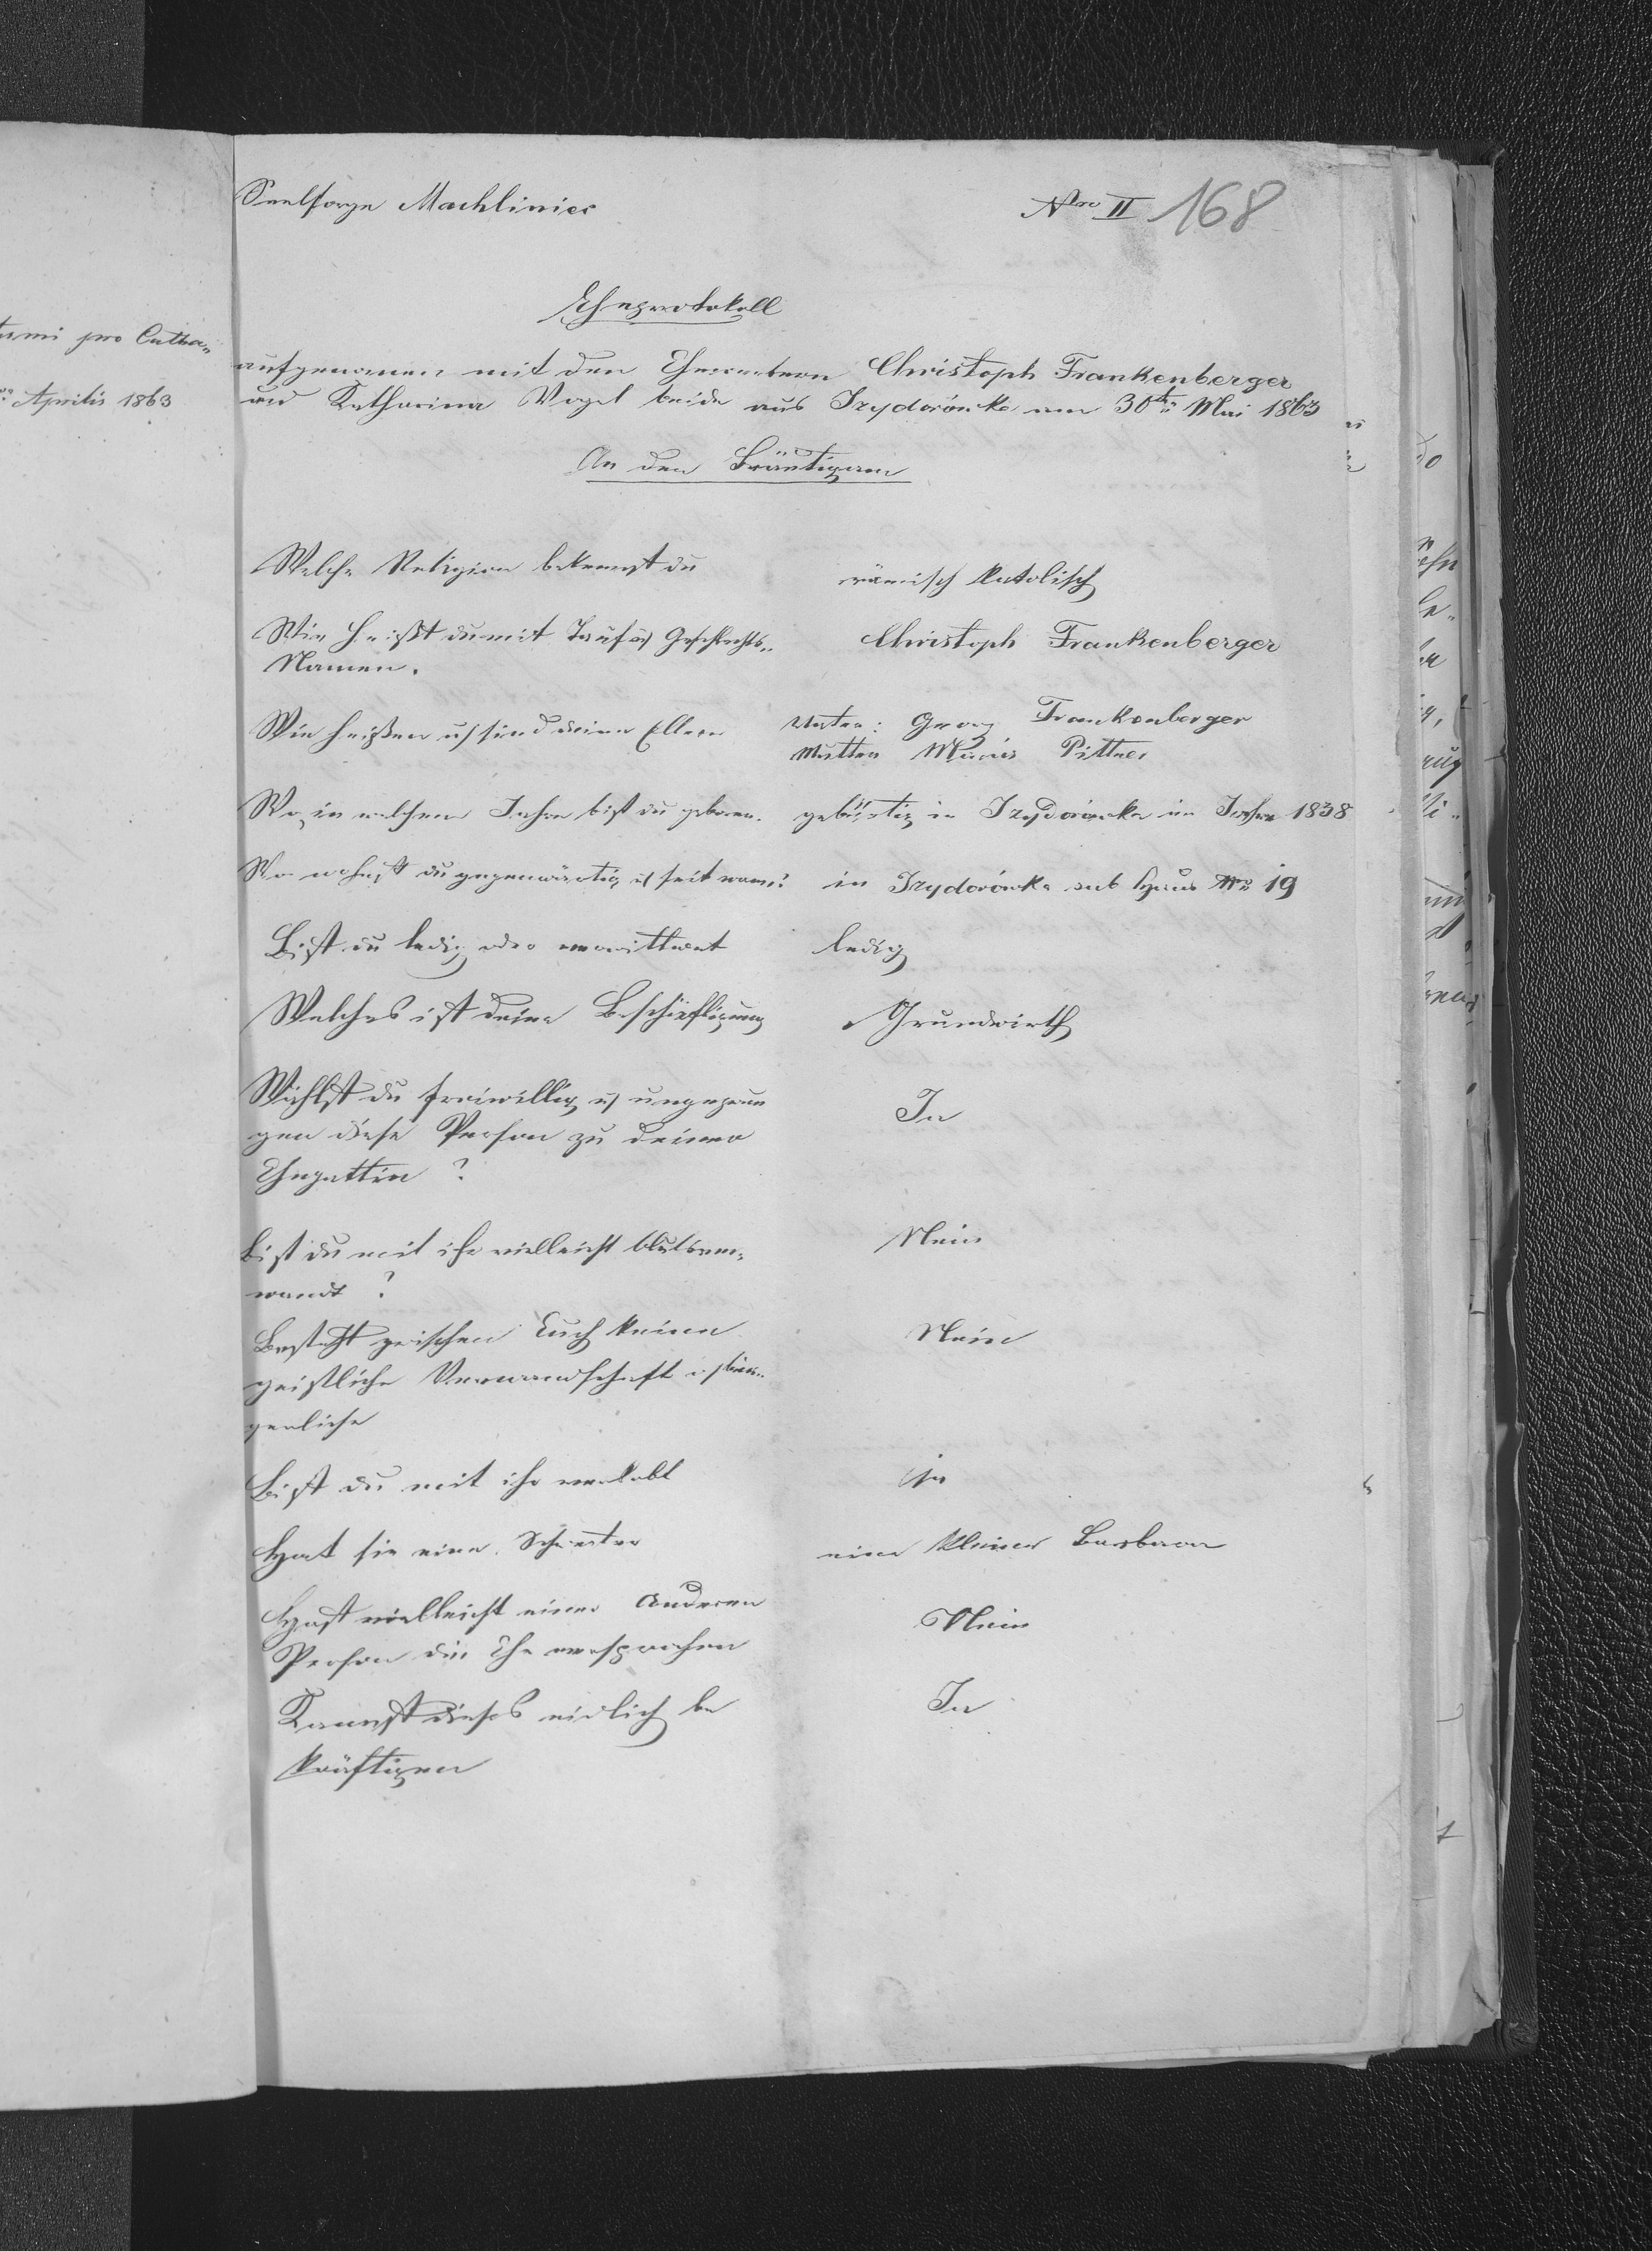 Seelsorge Machliniec
Nro II 168
Eheprotokoll
aufgenomen mit den Ehewerbern Christoph Frankenberger
und Katharina Vogel beide aus Izydorówka am 30t Mai 1863
An den Bräutigam
Welche Religion bekennst du
römisch katolisch
Wie heißt du mit Tauf u Geschlechts„
Namen.
Christoph Frankenberger
Wie heißen u sind deine Eltern
Vater: Georg Frankenberger
Mutter Maria Pittner
Wo, in welchem Jahre bist du geboren.
gebürtig in Izydorówka im Jahre 1838
Wo wohnst du gegenwärtig u seit wann?
in Izydorówka sub Haus Nro 19
Bist du ledig oder verwittwet
ledig
Welches ist deine Beschäftigung
Grundwirth
Wählst du freiwillig u ungezwun
gen diese Person zu deiner
Ehegattin ?
Ja
Bist du mit ihr vielleicht blutsver„
wandt ?
Nein
Besteht zwischen Euch keine
geistliche Verwandschaft
Nein
Bist du mit ihr verlobt
ja
Hat sie eine Schwester
eine kleine Barbara
Hast vielleicht einer anderen
Person die Ehe versprochen
Nein
Kannst dieses eidlich be
kräftigen
Ja
tumi pro Catha„
Aprilis 1863